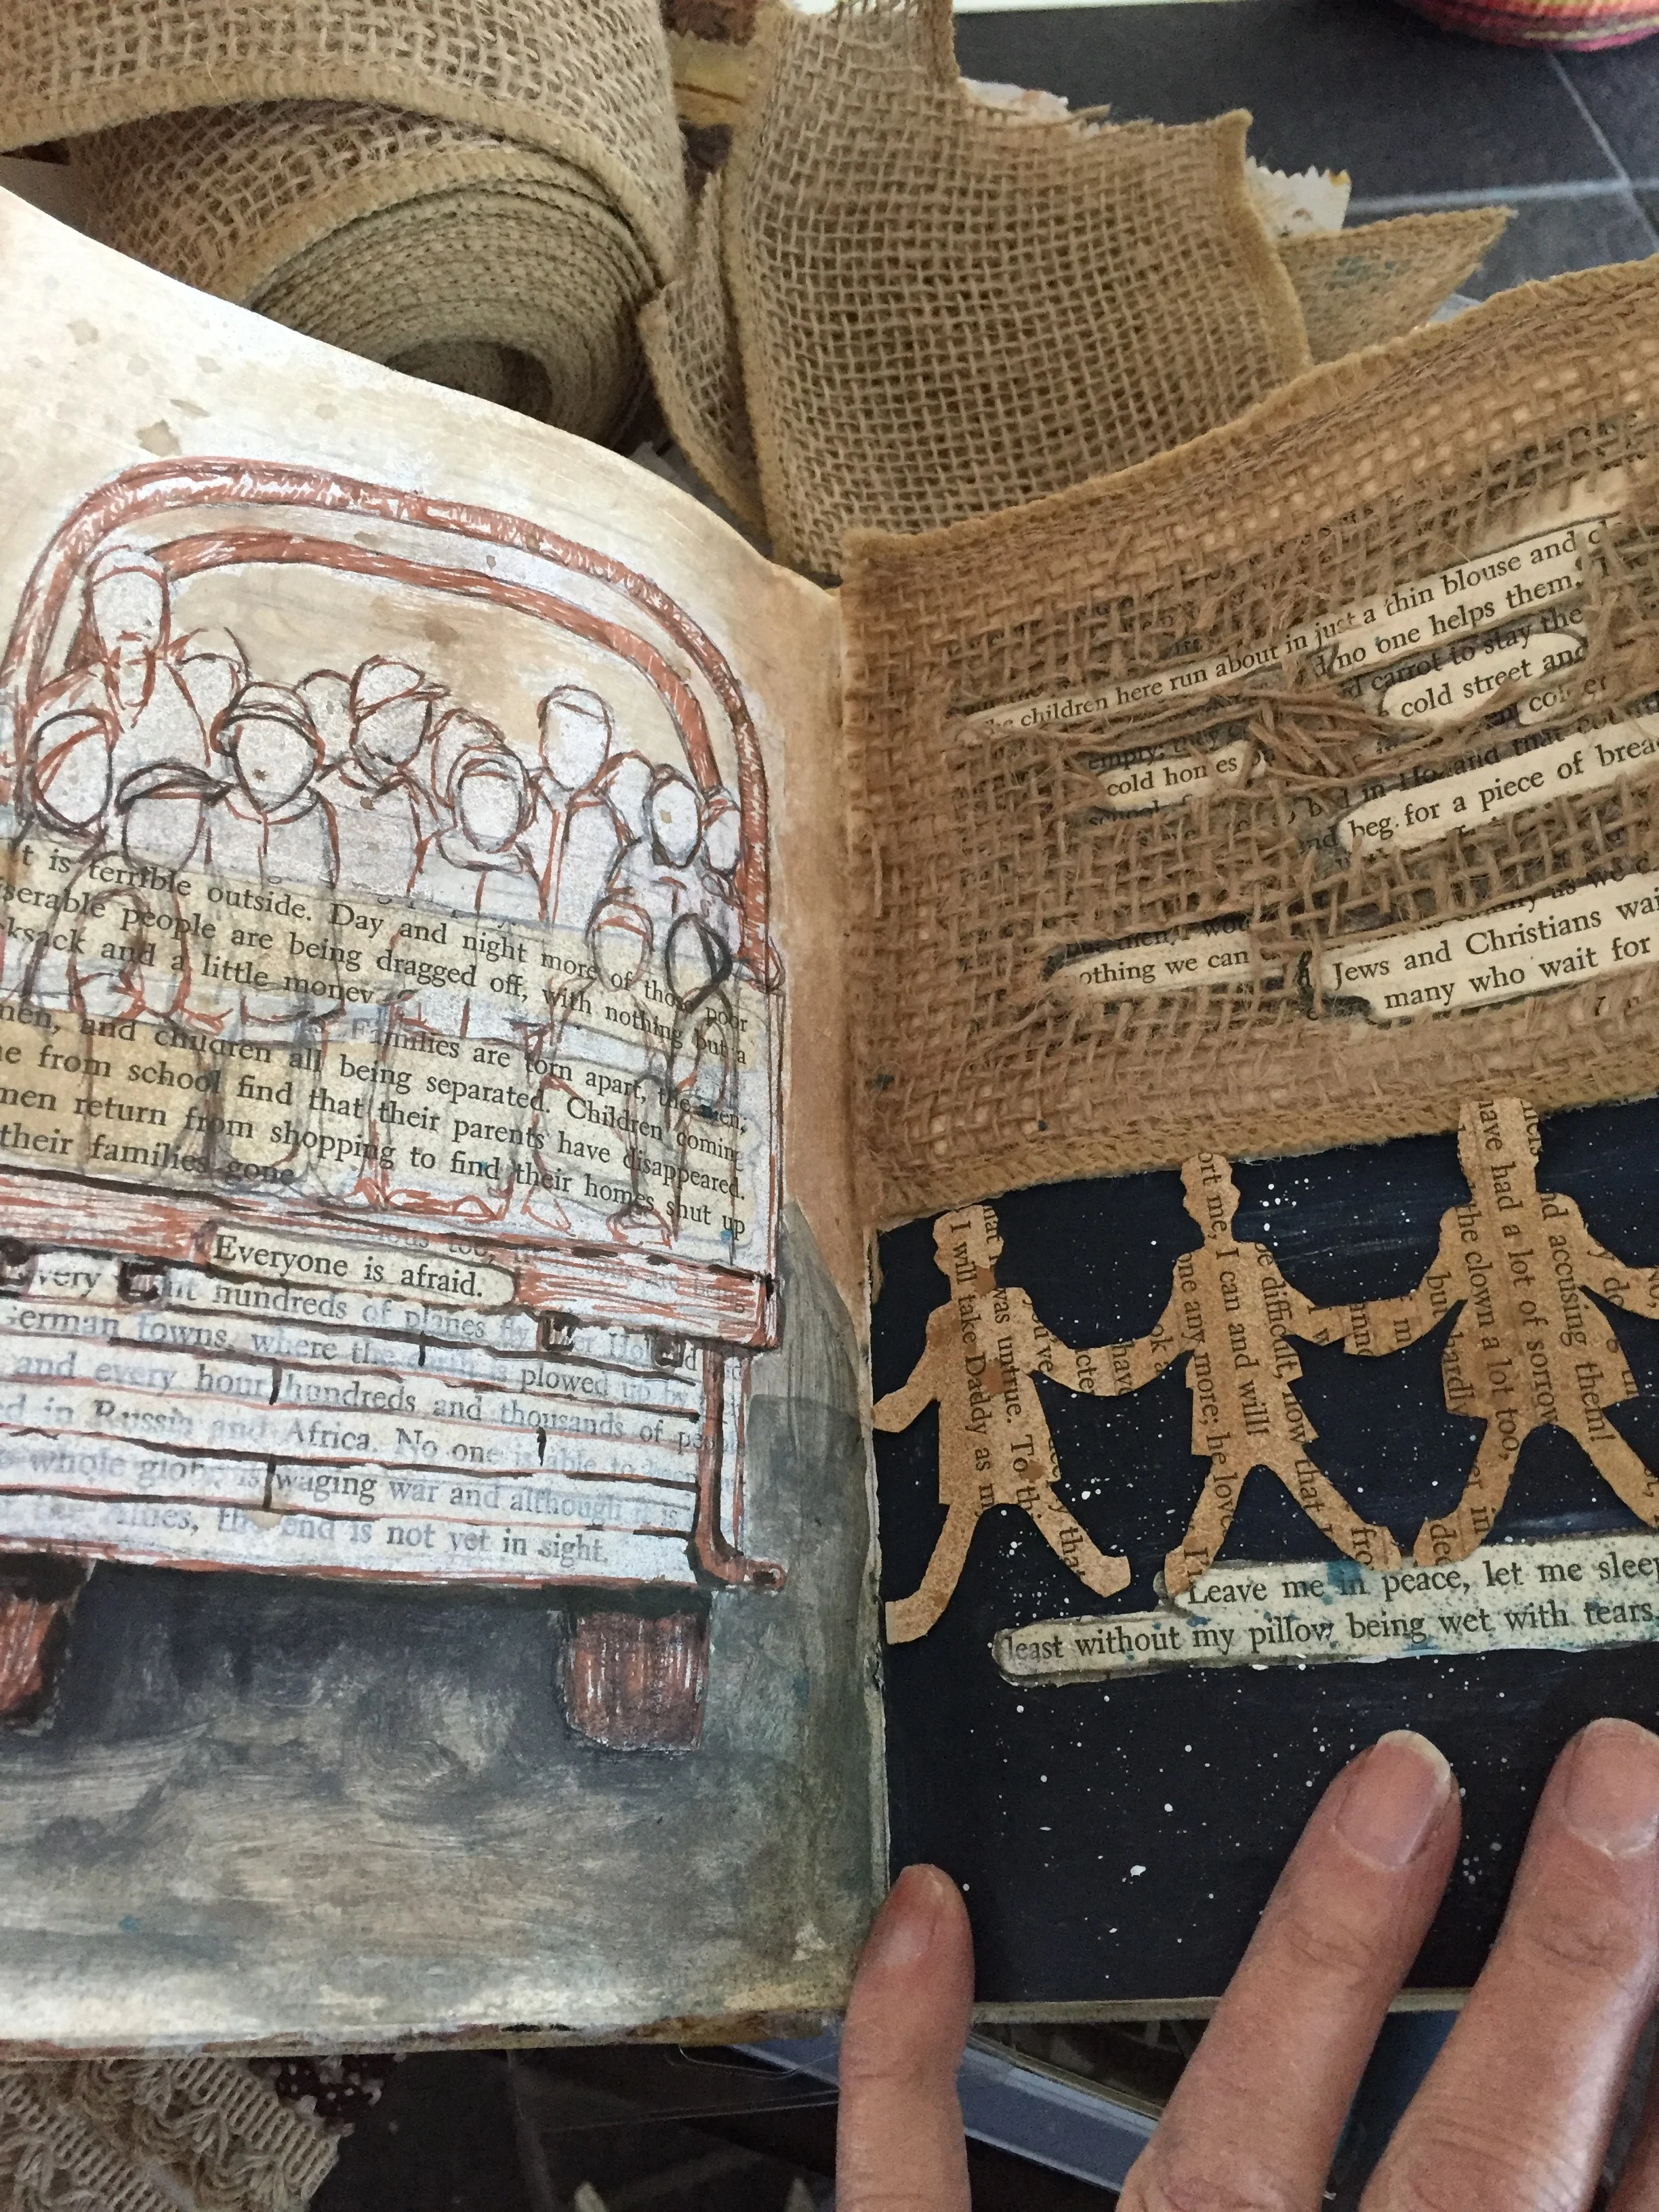 t is terrible outside. Day and night more of those poor
serable people are being dragged off, with nothing but a
cksack and a little money
Families are torn apart, the men,
men, and children all being separated. Children coming
e from school find that their parents have disappeared.
men return from shopping to find their homes shut up
their families gone
Everyone is afraid.
very hundreds of planes fly over Holland
German towns, where the earth is plowed up by
and every hour hundreds and thousands of people
ed in Russia and Africa. No one is able to keep
whole globe is waging war and although it is
the end is not yet in sight.
children here run about in just a thin blouse and c
no one helps them.
carrot to stay the
empty; they
cold street and
cold homes
in Holland that
beg for a piece of bread
othing we can
Jews and Christians wai
many who wait for
was untrue. To th
I will take Daddy as m
you've
have
ort me, I can and will
one any more; he love
be difficult, now that
have had a lot of sorrow
the clown a lot too,
nd accusing them!
but
hardl
Leave me in peace, let me sleep
least without my pillow being wet with tears,